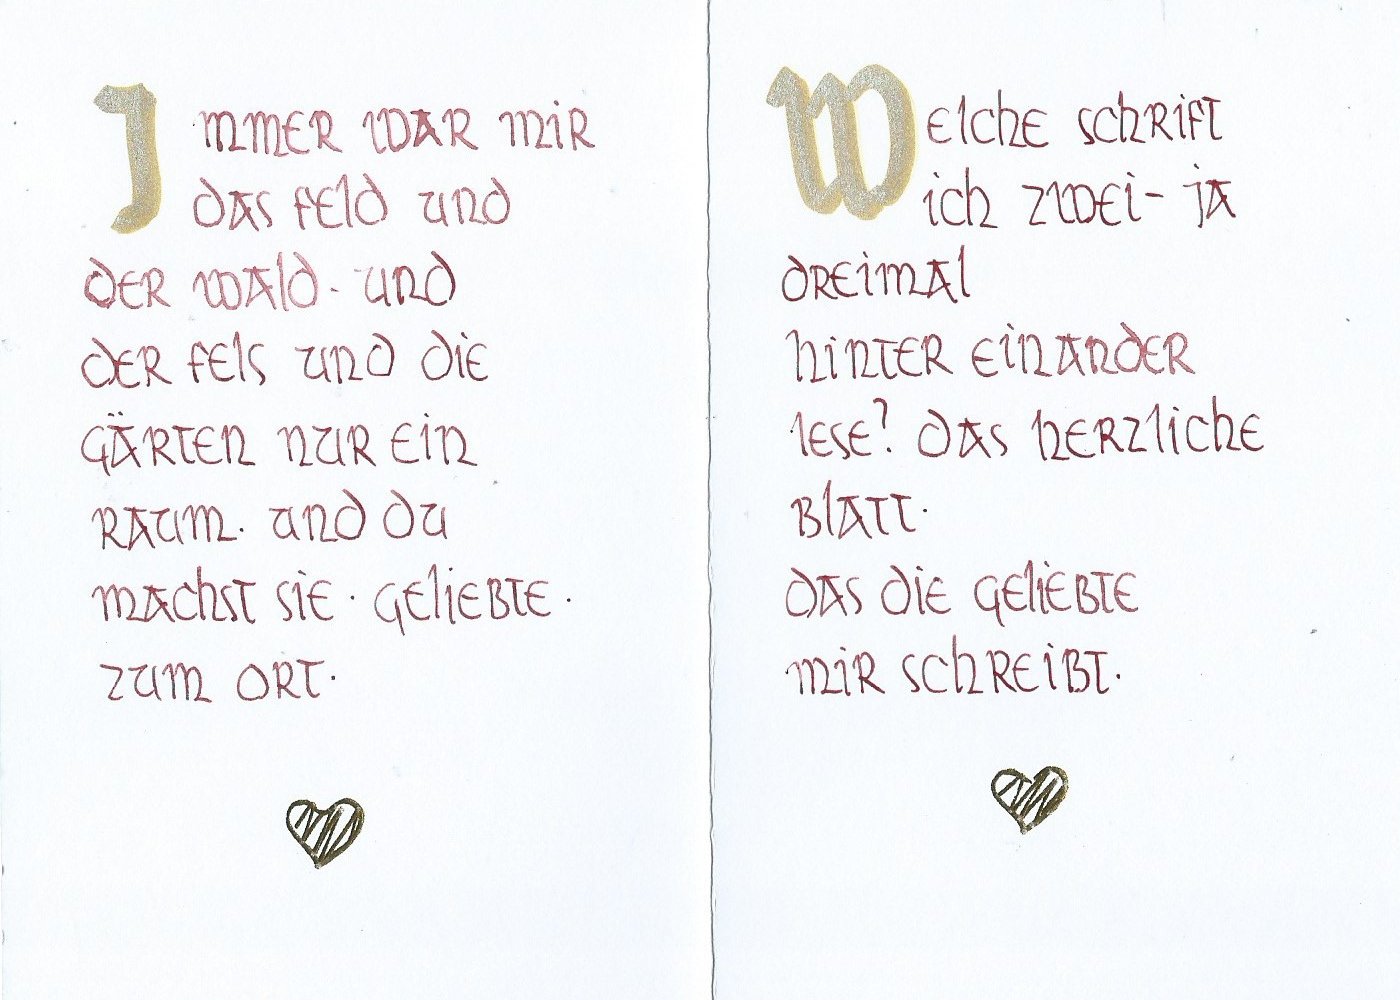 Immer war mir
das feld und
der wald · und
der fels und die
gärten nur ein
raum · und du
machst sie · geliebte ·
zum ort ·
Welche schrift
ich zwei- ja
dreimal
hinter einander
lese? das herzliche
blatt ·
das die geliebte
mir schreibt ·